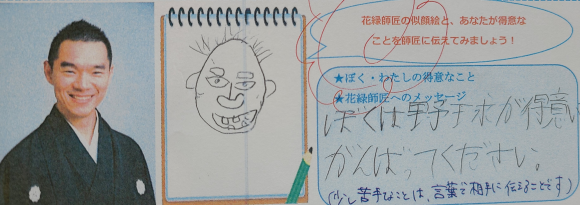 花緑師匠の似顔絵と、あなたが得意な
ことを師匠に伝えてみましょう！
★ぼく・わたしの得意なこと
★花緑師匠へのメッセージ
ぼくは野球が得意
がんばってください。
(少し苦手なことは、言葉で相手に伝えることです)